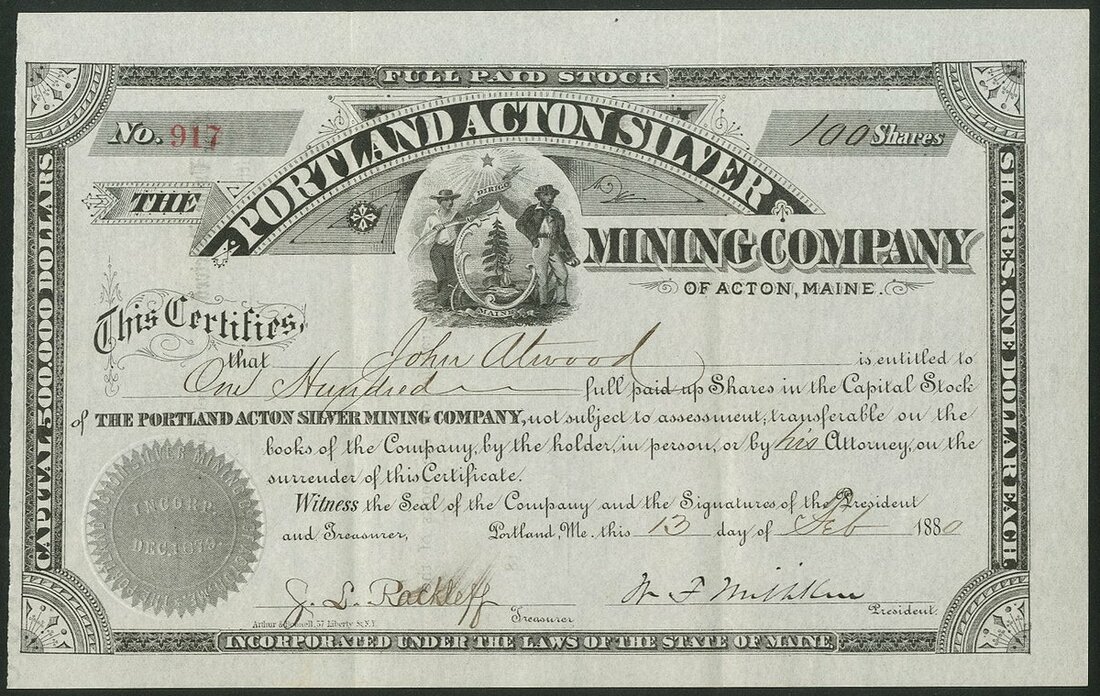 FULL PAID STOCK
No. 917
100 Shares
THE
PORTLAND ACTON SILVER
MINING COMPANY
OF ACTON, MAINE.
DIRIGO
MAINE
CAPITAL 500000 DOLLARS
SHARES, ONE DOLLAR EACH
This Certifies,
that John Atwood is entitled to
One Hundred full paid up Shares in the Capital Stock
of THE PORTLAND ACTON SILVER MINING COMPANY, not subject to assessment; transferable on the
books of the Company, by the holder, in person, or by his Attorney, on the
surrender of this Certificate.
Witness the Seal of the Company and the Signatures of the President
and Treasurer, Portland, Me. this 13 day of Feb 1880
INCORP.
DEC. 1879
J. L. Rackleff
Treasurer
President.
Arthur & 57 Liberty St. N.Y.
INCORPORATED UNDER THE LAWS OF THE STATE OF MAINE